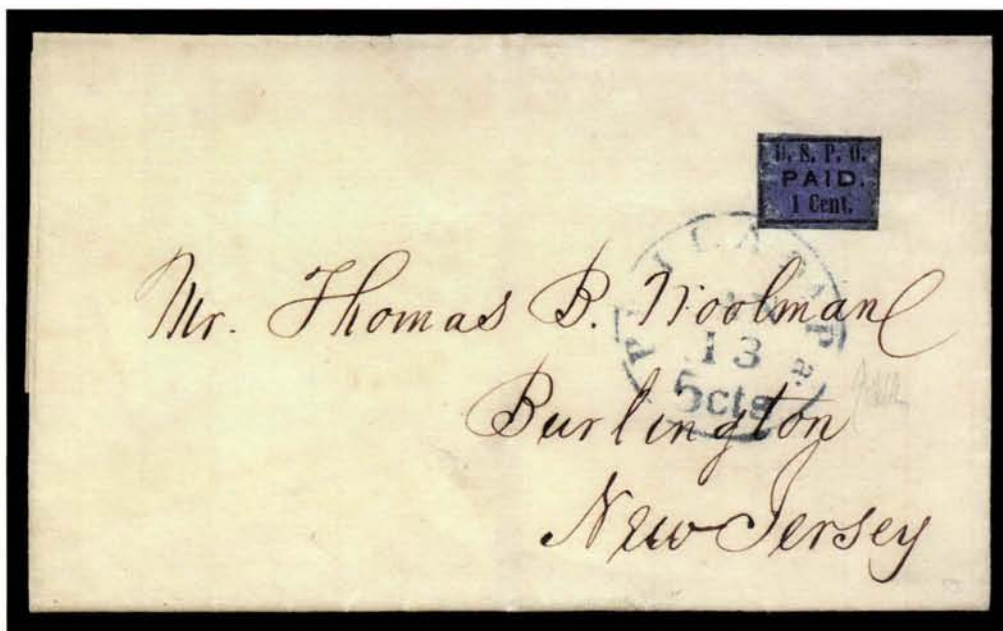 U. S. P. O.
PAID.
1 Cent.
PHILADA Pa.
13
5cts
Mr. Thomas B. Woolman
Burlington
New Jersey